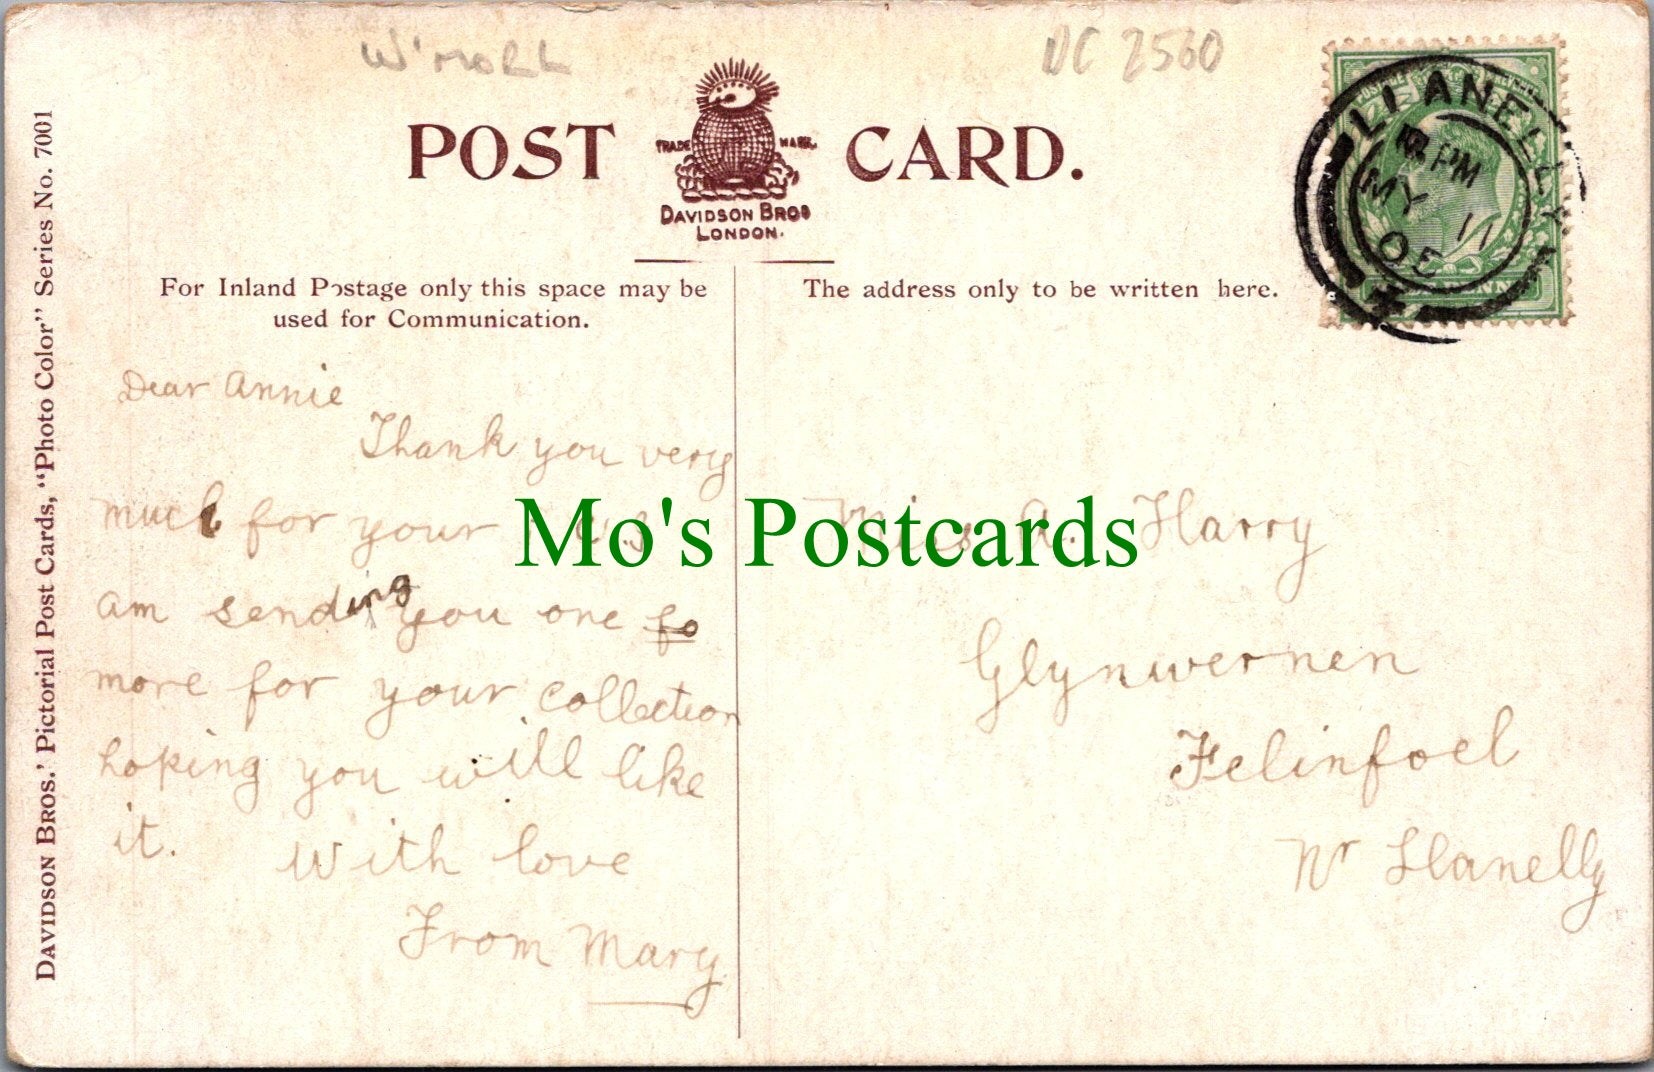 W'MORL
DC 2560
POST CARD.
TRADE MARK.
DAVIDSON BROS
LONDON.
LLANELLY
PM
MY 11
05
For Inland Postage only this space may be
used for Communication.
The address only to be written here.
DAVIDSON BROS.' Pictorial Post Cards, "Photo Color" Series No. 7001
Dear Annie
Thank you very
much for your
am sending you one
more for your collection
hoping you will like
it. With love
From Mary
Miss A. Harry
Glynwernen
Felinfoel
Nr Llanelly
Mo's Postcards